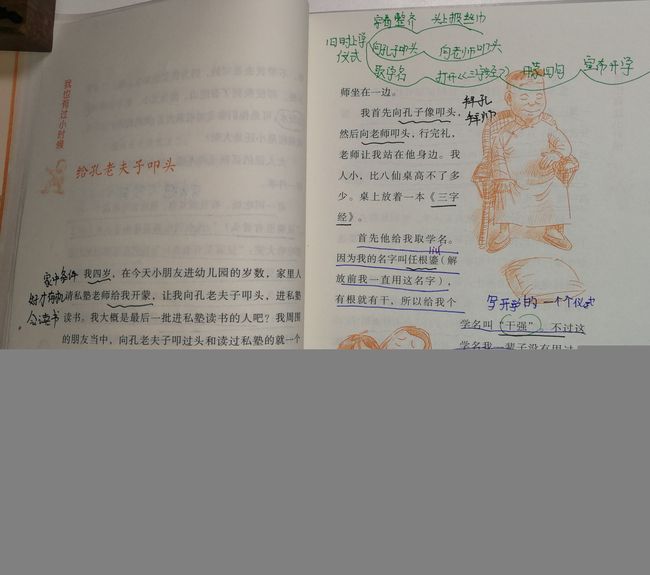 我也有过小时候
给孔老夫子叩头
家中条件
好才有机
会读书
我四岁，在今天小朋友进幼儿园的岁数，家里人
请私塾老师给我开蒙，让我向孔老夫子叩头，进私塾
读书。我大概是最后一批进私塾读书的人吧？我周围
的朋友当中，向孔老夫子叩过头和读过私塾的就一个
穿着整齐 头上披丝巾
旧时上学
仪式
向孔子叩头 向老师叩头
取学名 打开《三字经》 四句 宣布开学
师坐在一边。
我首先向孔子像叩头，
然后向老师叩头，行完礼，
老师让我站在他身边。我
人小，比八仙桌高不了多
少。桌上放着一本《三字
经》。
拜孔
拜师
首先他给我取学名。
因为我的名字叫任根鎏（解
放前我一直用这名字），
有根就有干，所以给我个
写开学的一个个仪式
学名叫“干强”。不过这
学名我一辈子没有用过